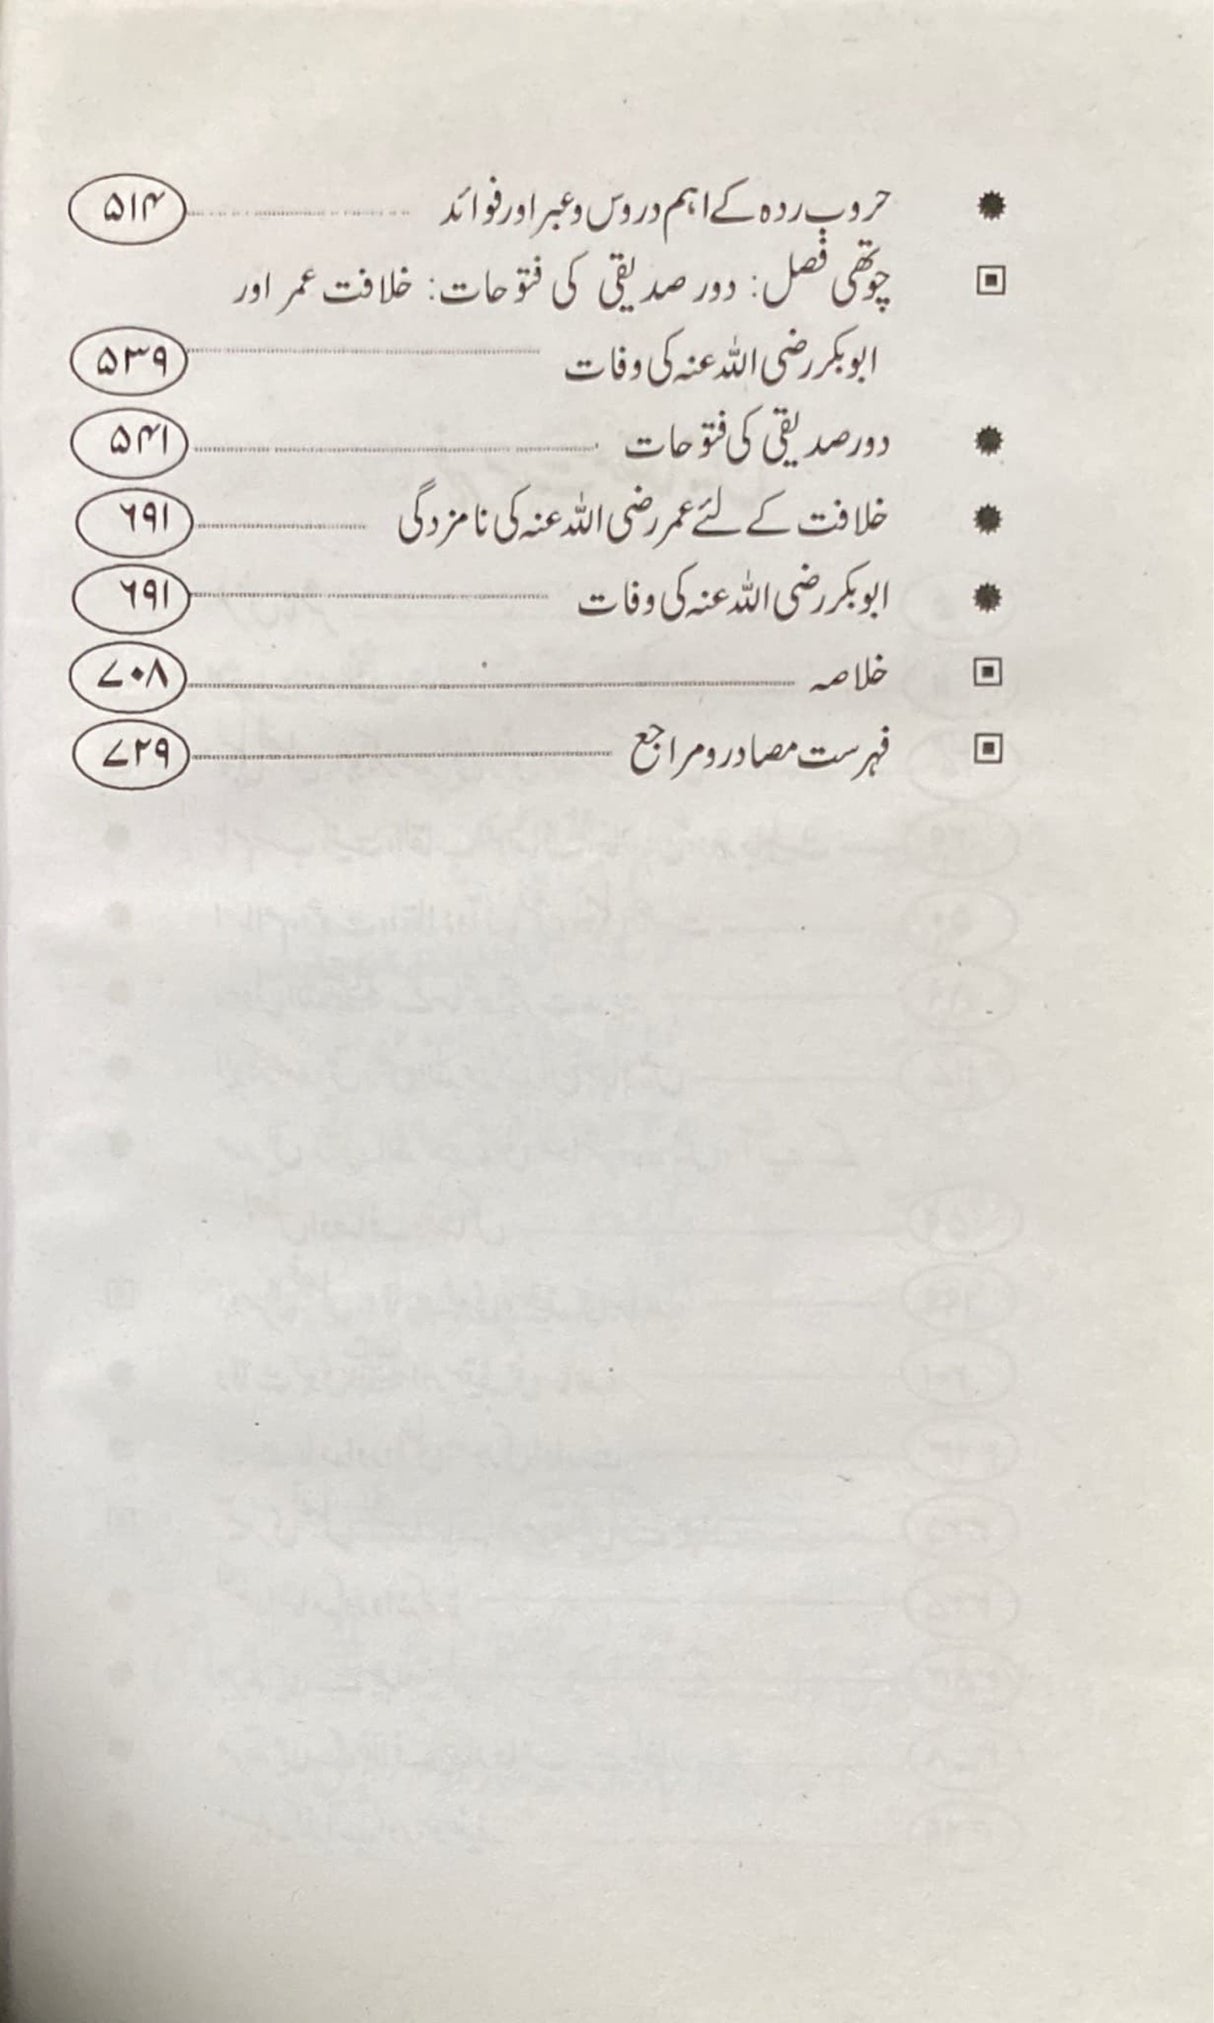 حروبِ ردہ کے اہم دروس و عبر اور فوائد ۵۱۴
چوتھی فصل: دور صدیقی کی فتوحات: خلافت عمر اور
ابوبکر رضی اللہ عنہ کی وفات ۵۳۹
دور صدیقی کی فتوحات ۵۴۱
خلافت کے لئے عمر رضی اللہ عنہ کی نامزدگی ۶۹۱
ابوبکر رضی اللہ عنہ کی وفات ۶۹۱
خلاصہ ۷۰۸
فہرست مصادر و مراجع ۷۲۹